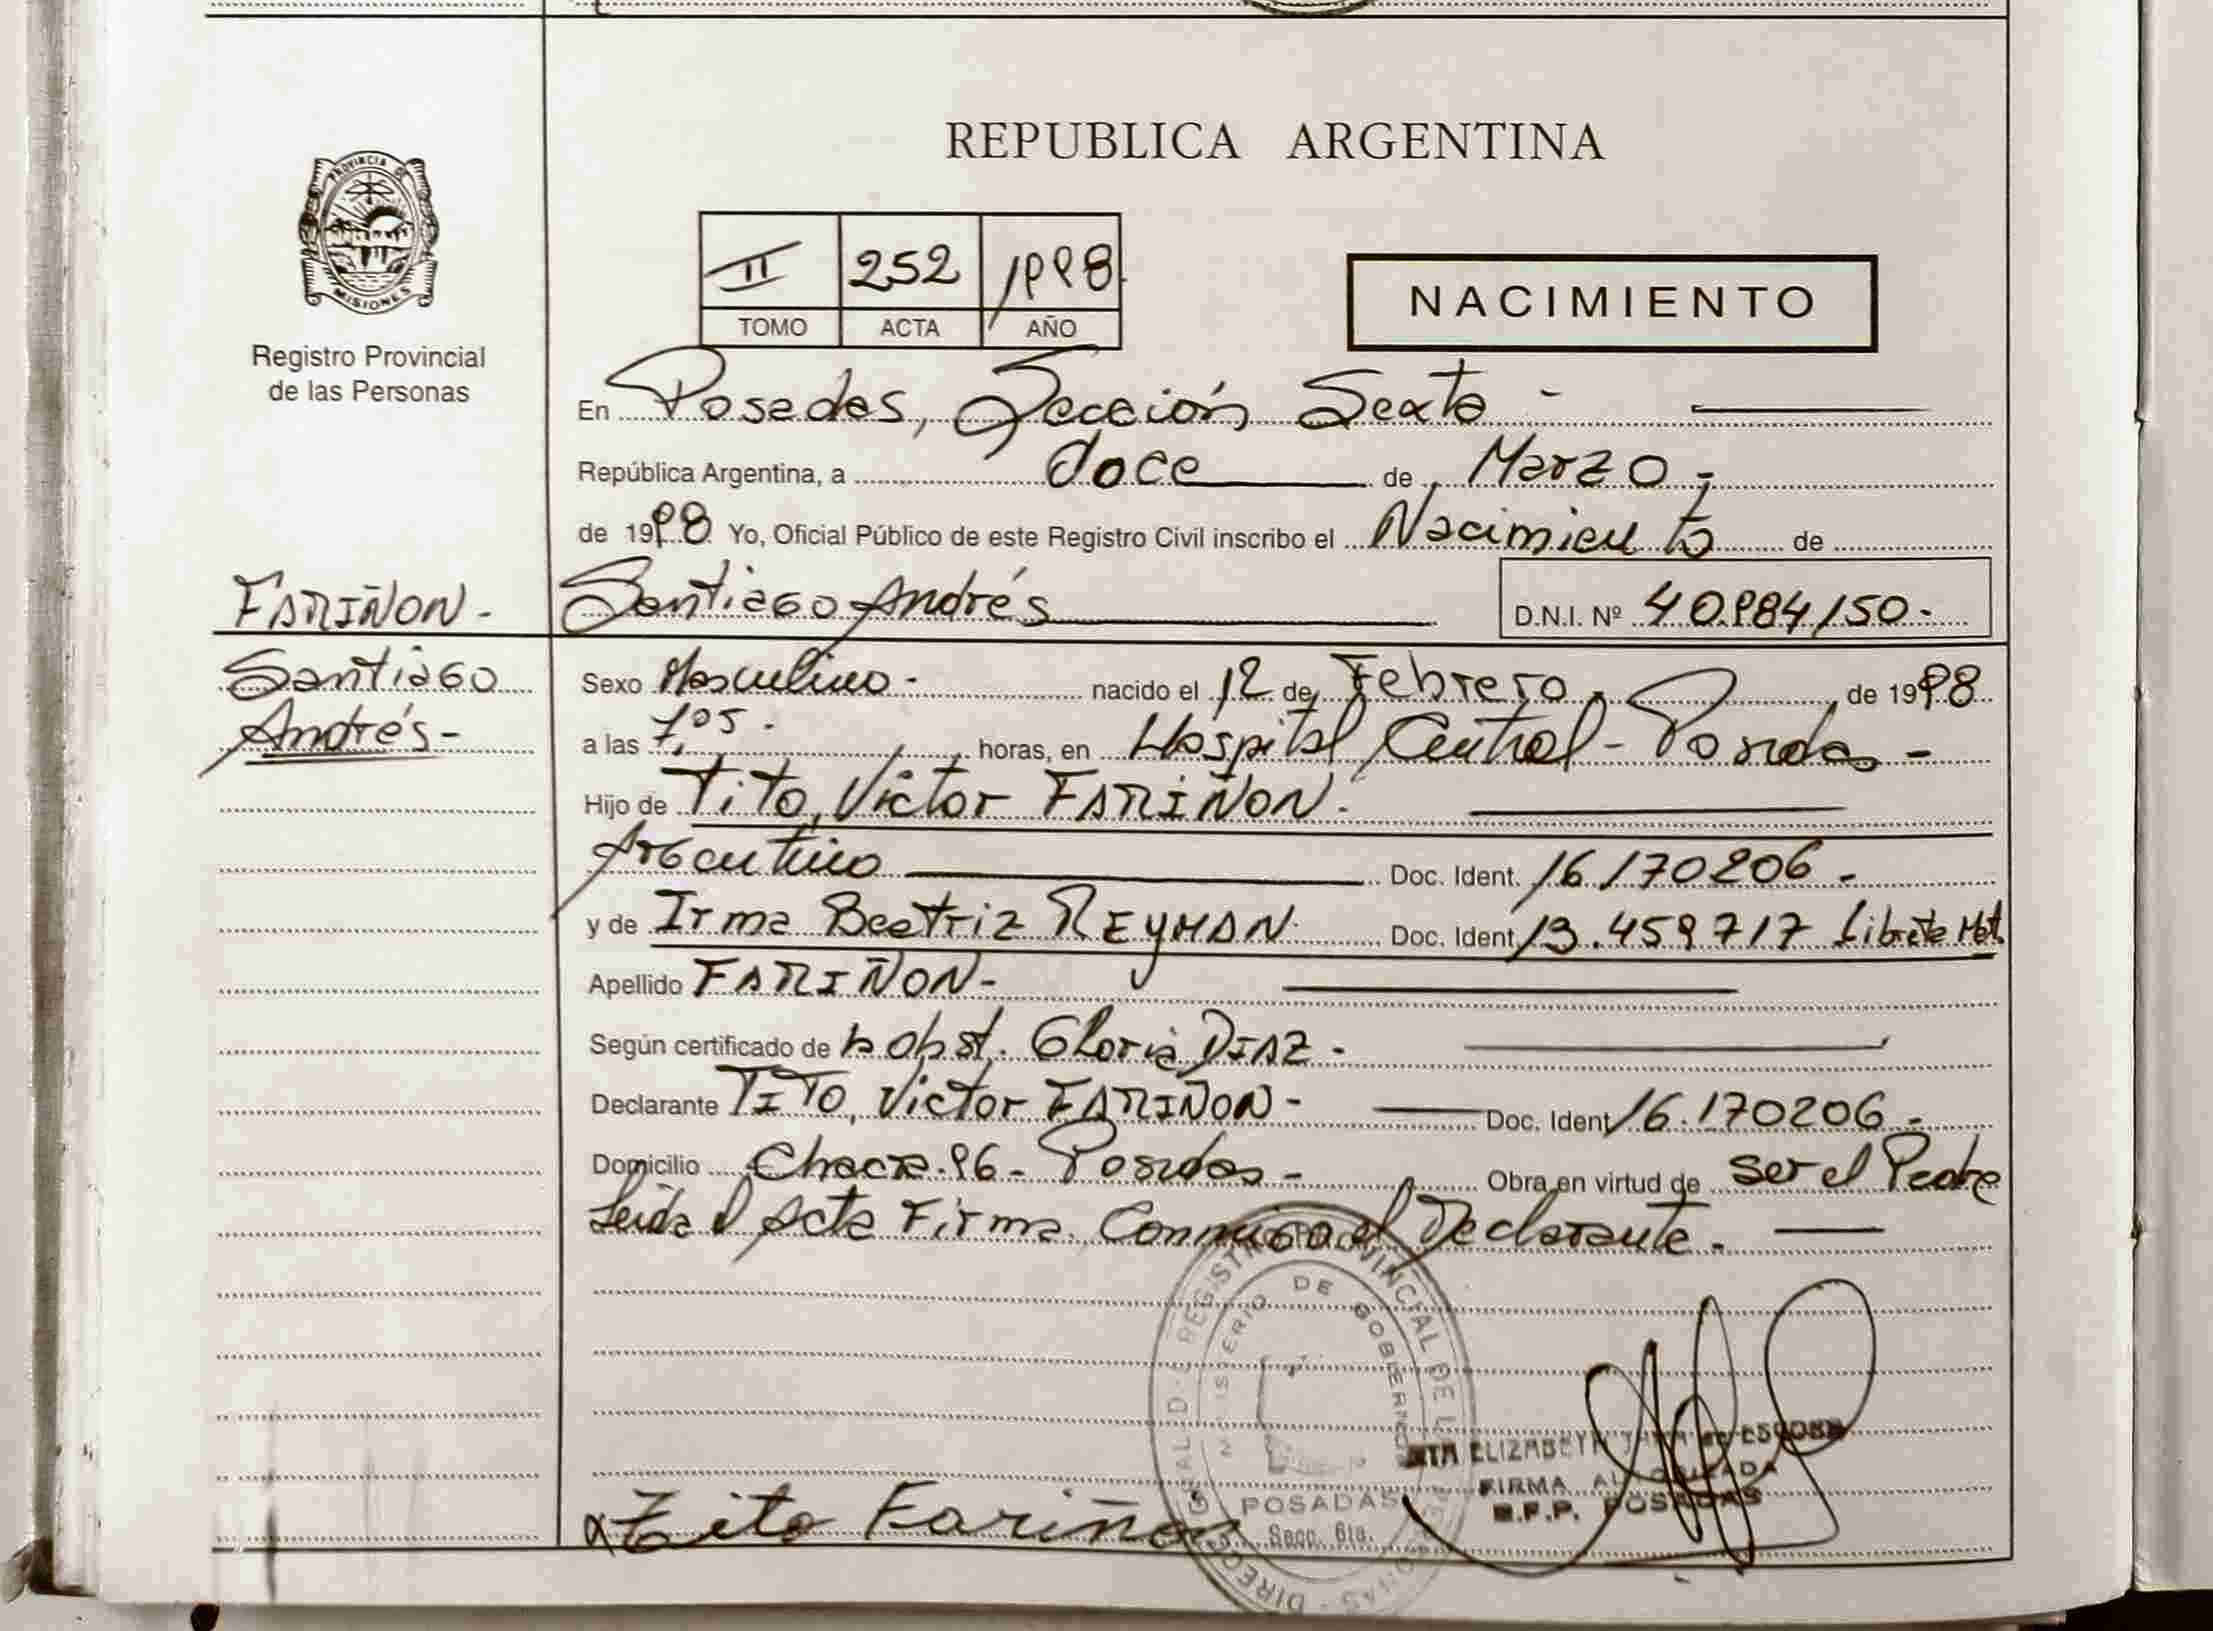 REPUBLICA ARGENTINA
PROVINCIA DE
MISIONES
Registro Provincial
de las Personas
II 252 1998
TOMO ACTA AÑO
NACIMIENTO
En Posadas, Sección Sexta -
República Argentina, a doce de Marzo -
de 1998 Yo, Oficial Público de este Registro Civil inscribo el Nacimiento de
FARIÑON - Santiago Andrés D.N.I. Nº 40.984150 -
Santiago
Andrés -
Sexo Masculino - nacido el 12 de Febrero - de 1998
a las 7,05 - horas, en Hospital Central - Posadas -
Hijo de Tito, Víctor FARIÑON -
Argentino Doc. Ident. 16.170206 -
y de Irma Beatriz REYMAN Doc. Ident 13.459717 Libreta Mat.
Apellido FARIÑON -
Según certificado de Obst. Gloria DIAZ -
Declarante TITO, Victor FARIÑON - Doc. Ident 16.170206 -
Domicilio Chacra 96 - Posadas - Obra en virtud de ser el Padre
Leída el Acta Firma Conmigo el Declarante -
REGISTRO PROVINCIAL DE L
MINISTERIO DE GOBIERNO
POSADAS
Secc. 6ta.
ELIZABETH
FIRMA AUTORIZADA
R.P.P. POSADAS
x Tito Fariñon